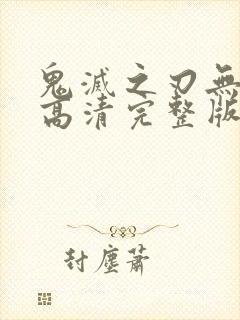 鬼滅之刃無
高清完整版
封塵蕭